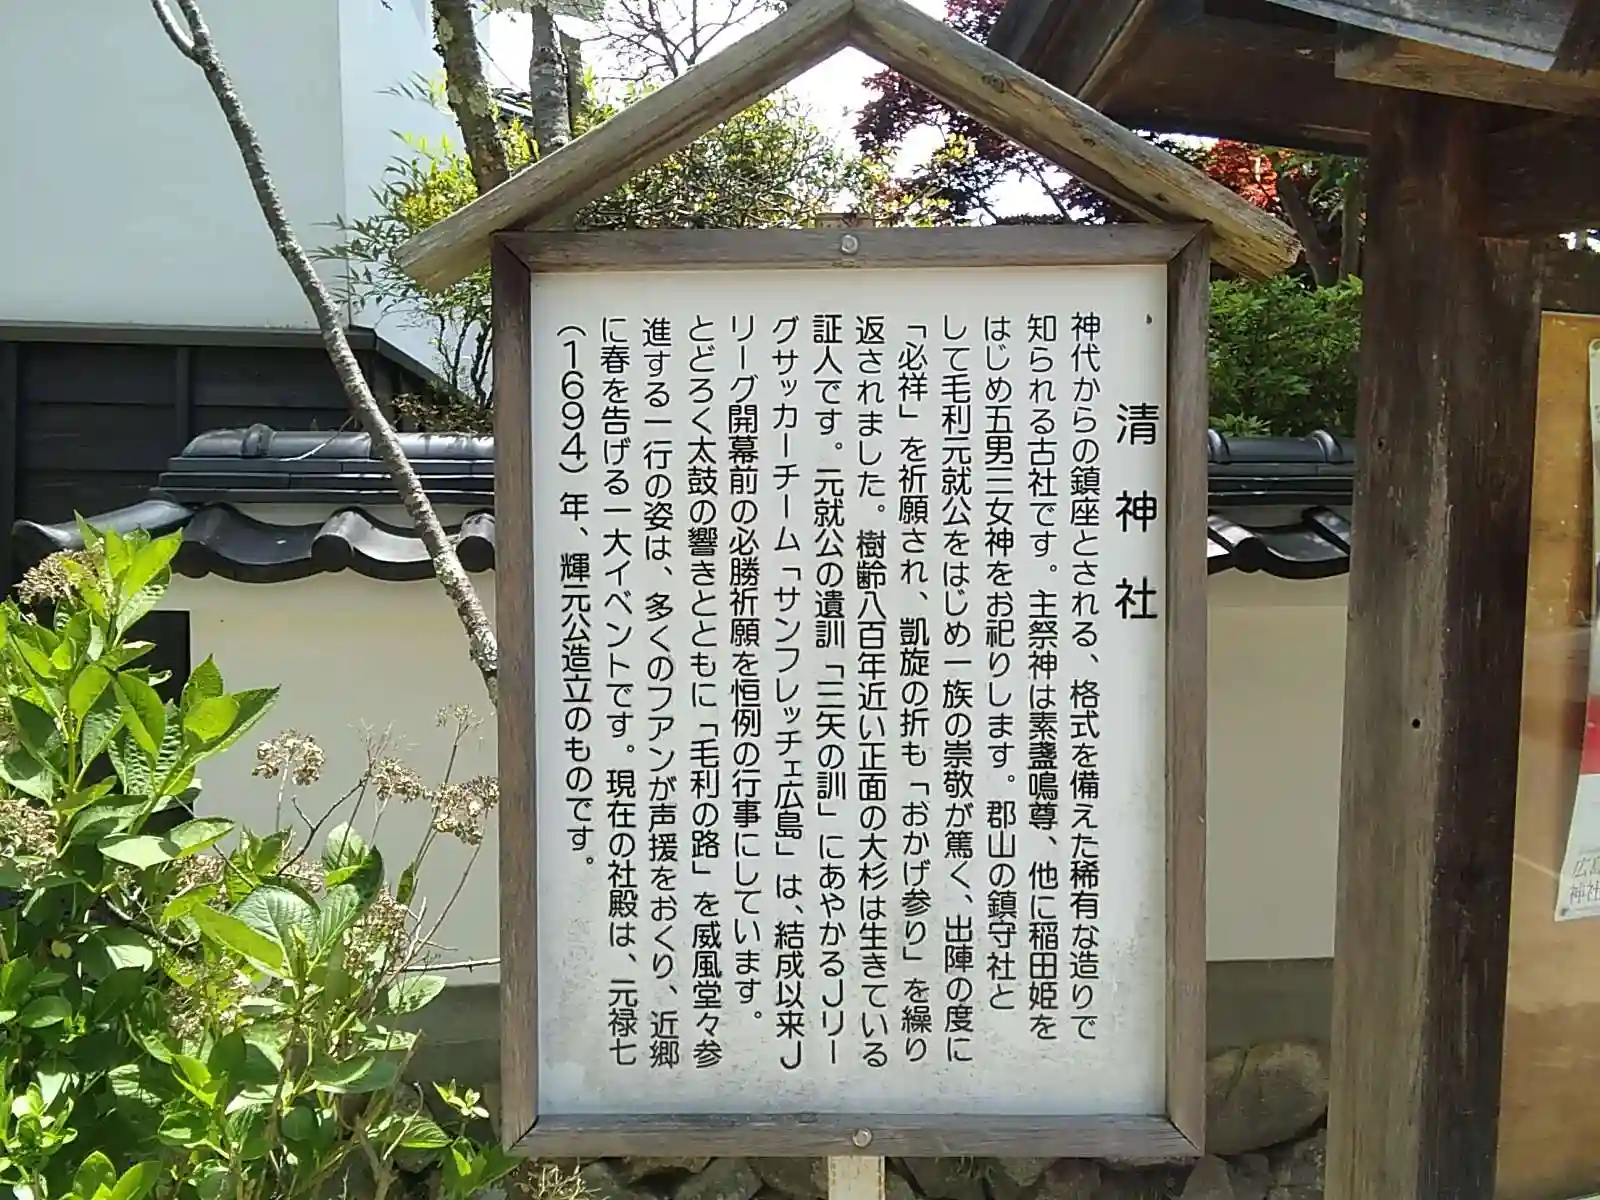 清神社
神代からの鎮座とされる、格式を備えた稀有な造りで
知られる古社です。主祭神は素盞鳴尊、他に稲田姫を
はじめ五男三女神をお祀りします。郡山の鎮守社と
して毛利元就公をはじめ一族の崇敬が篤く、出陣の度に
「必祥」を祈願され、凱旋の折も「おかげ参り」を繰り
返されました。樹齢八百年近い正面の大杉は生きている
証人です。元就公の遺訓「三矢の訓」にあやかるJリー
グサッカーチーム「サンフレッチェ広島」は、結成以来J
リーグ開幕前の必勝祈願を恒例の行事にしています。
とどろく太鼓の響きとともに「毛利の路」を威風堂々参
進する一行の姿は、多くのファンが声援をおくり、近郷
に春を告げる一大イベントです。現在の社殿は、元禄七
(1694)年、輝元公造立のものです。
広島
神社